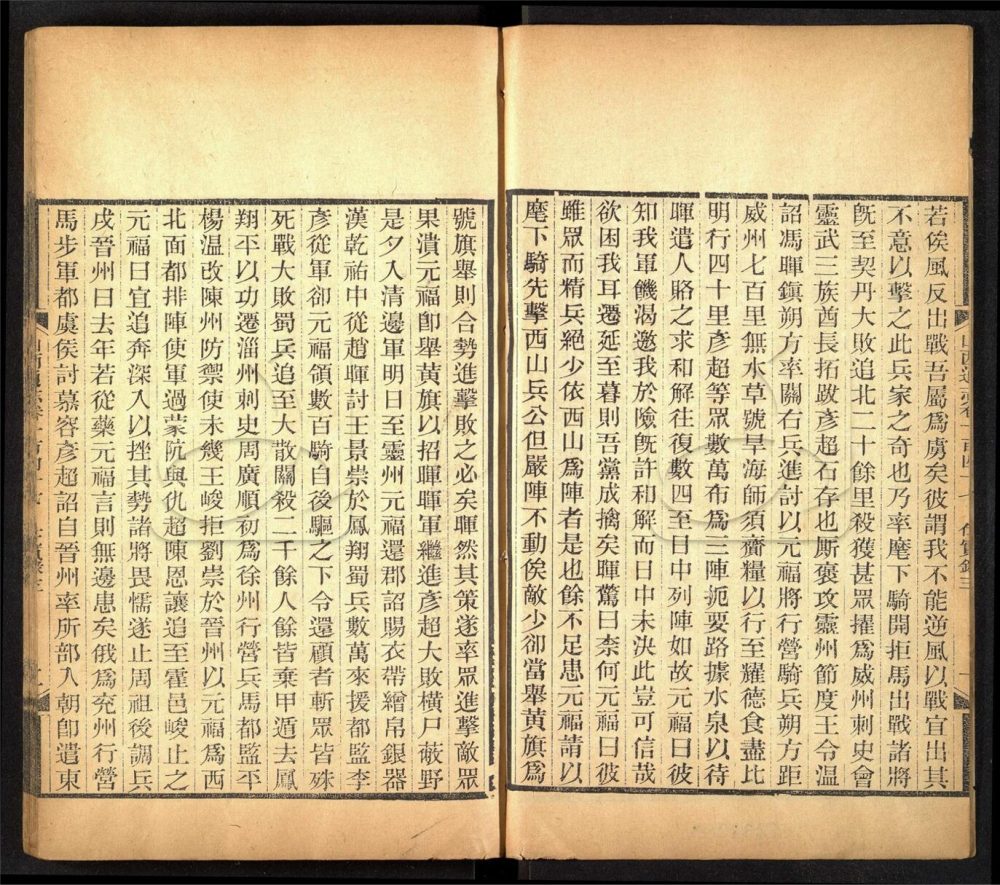 若俟風反出戰吾屬爲虜矣彼謂我不能逆風以戰宜出其
不意以擊之此兵家之奇也乃率麾下騎開拒馬出戰諸將
既至契丹大敗追北二十餘里殺獲甚眾擢爲威州刺史會
靈武三族酋長拓跋彥超石存也厮褒攻靈州節度王令溫
詔馮暉鎭朔方率關右兵進討以元福將行營騎兵朔方距
威州七百里無水草號旱海師須齎糧以行至耀德食盡比
明行四十里彥超等眾數萬布爲三陣扼要路據水泉以待
暉遣人賂之求和解往復數四至日中列陣如故元福曰彼
知我軍饑渴邀我於險既許和解而日中未決此豈可信哉
欲困我耳遷延至暮則吾黨成擒矣暉驚曰柰何元福曰彼
雖眾而精兵絕少依西山爲陣者是也餘不足患元福請以
麾下騎先擊西山兵公但嚴陣不動俟敵少卻當舉黃旗爲
號旗舉則合勢進擊敗之必矣暉然其策遂率眾進擊敵眾
果潰元福卽舉黃旗以招暉暉軍繼進彥超大敗橫尸蔽野
是夕入清邊軍明日至靈州元福還郡詔賜衣帶繒帛銀器
漢乾祐中從趙暉討王景崇於鳳翔蜀兵數萬來援都監李
彥從軍卻元福領數百騎自後驅之下令還顧者斬眾皆殊
死戰大敗蜀兵追至大散關殺二千餘人餘皆棄甲遁去鳳
翔平以功遷淄州刺史周廣順初爲徐州行營兵馬都監平
楊溫改陳州防禦使未幾王峻拒劉崇於晉州以元福爲西
北面都排陣使軍過蒙阬與仇超陳恩讓追至霍邑峻止之
元福曰宜追奔深入以挫其勢諸將畏懦遂止周祖後調兵
戌晉州曰去年若從藥元福言則無邊患矣俄爲兗州行營
馬步軍都虞侯討慕容彥超詔自晉州率所部入朝卽遣東